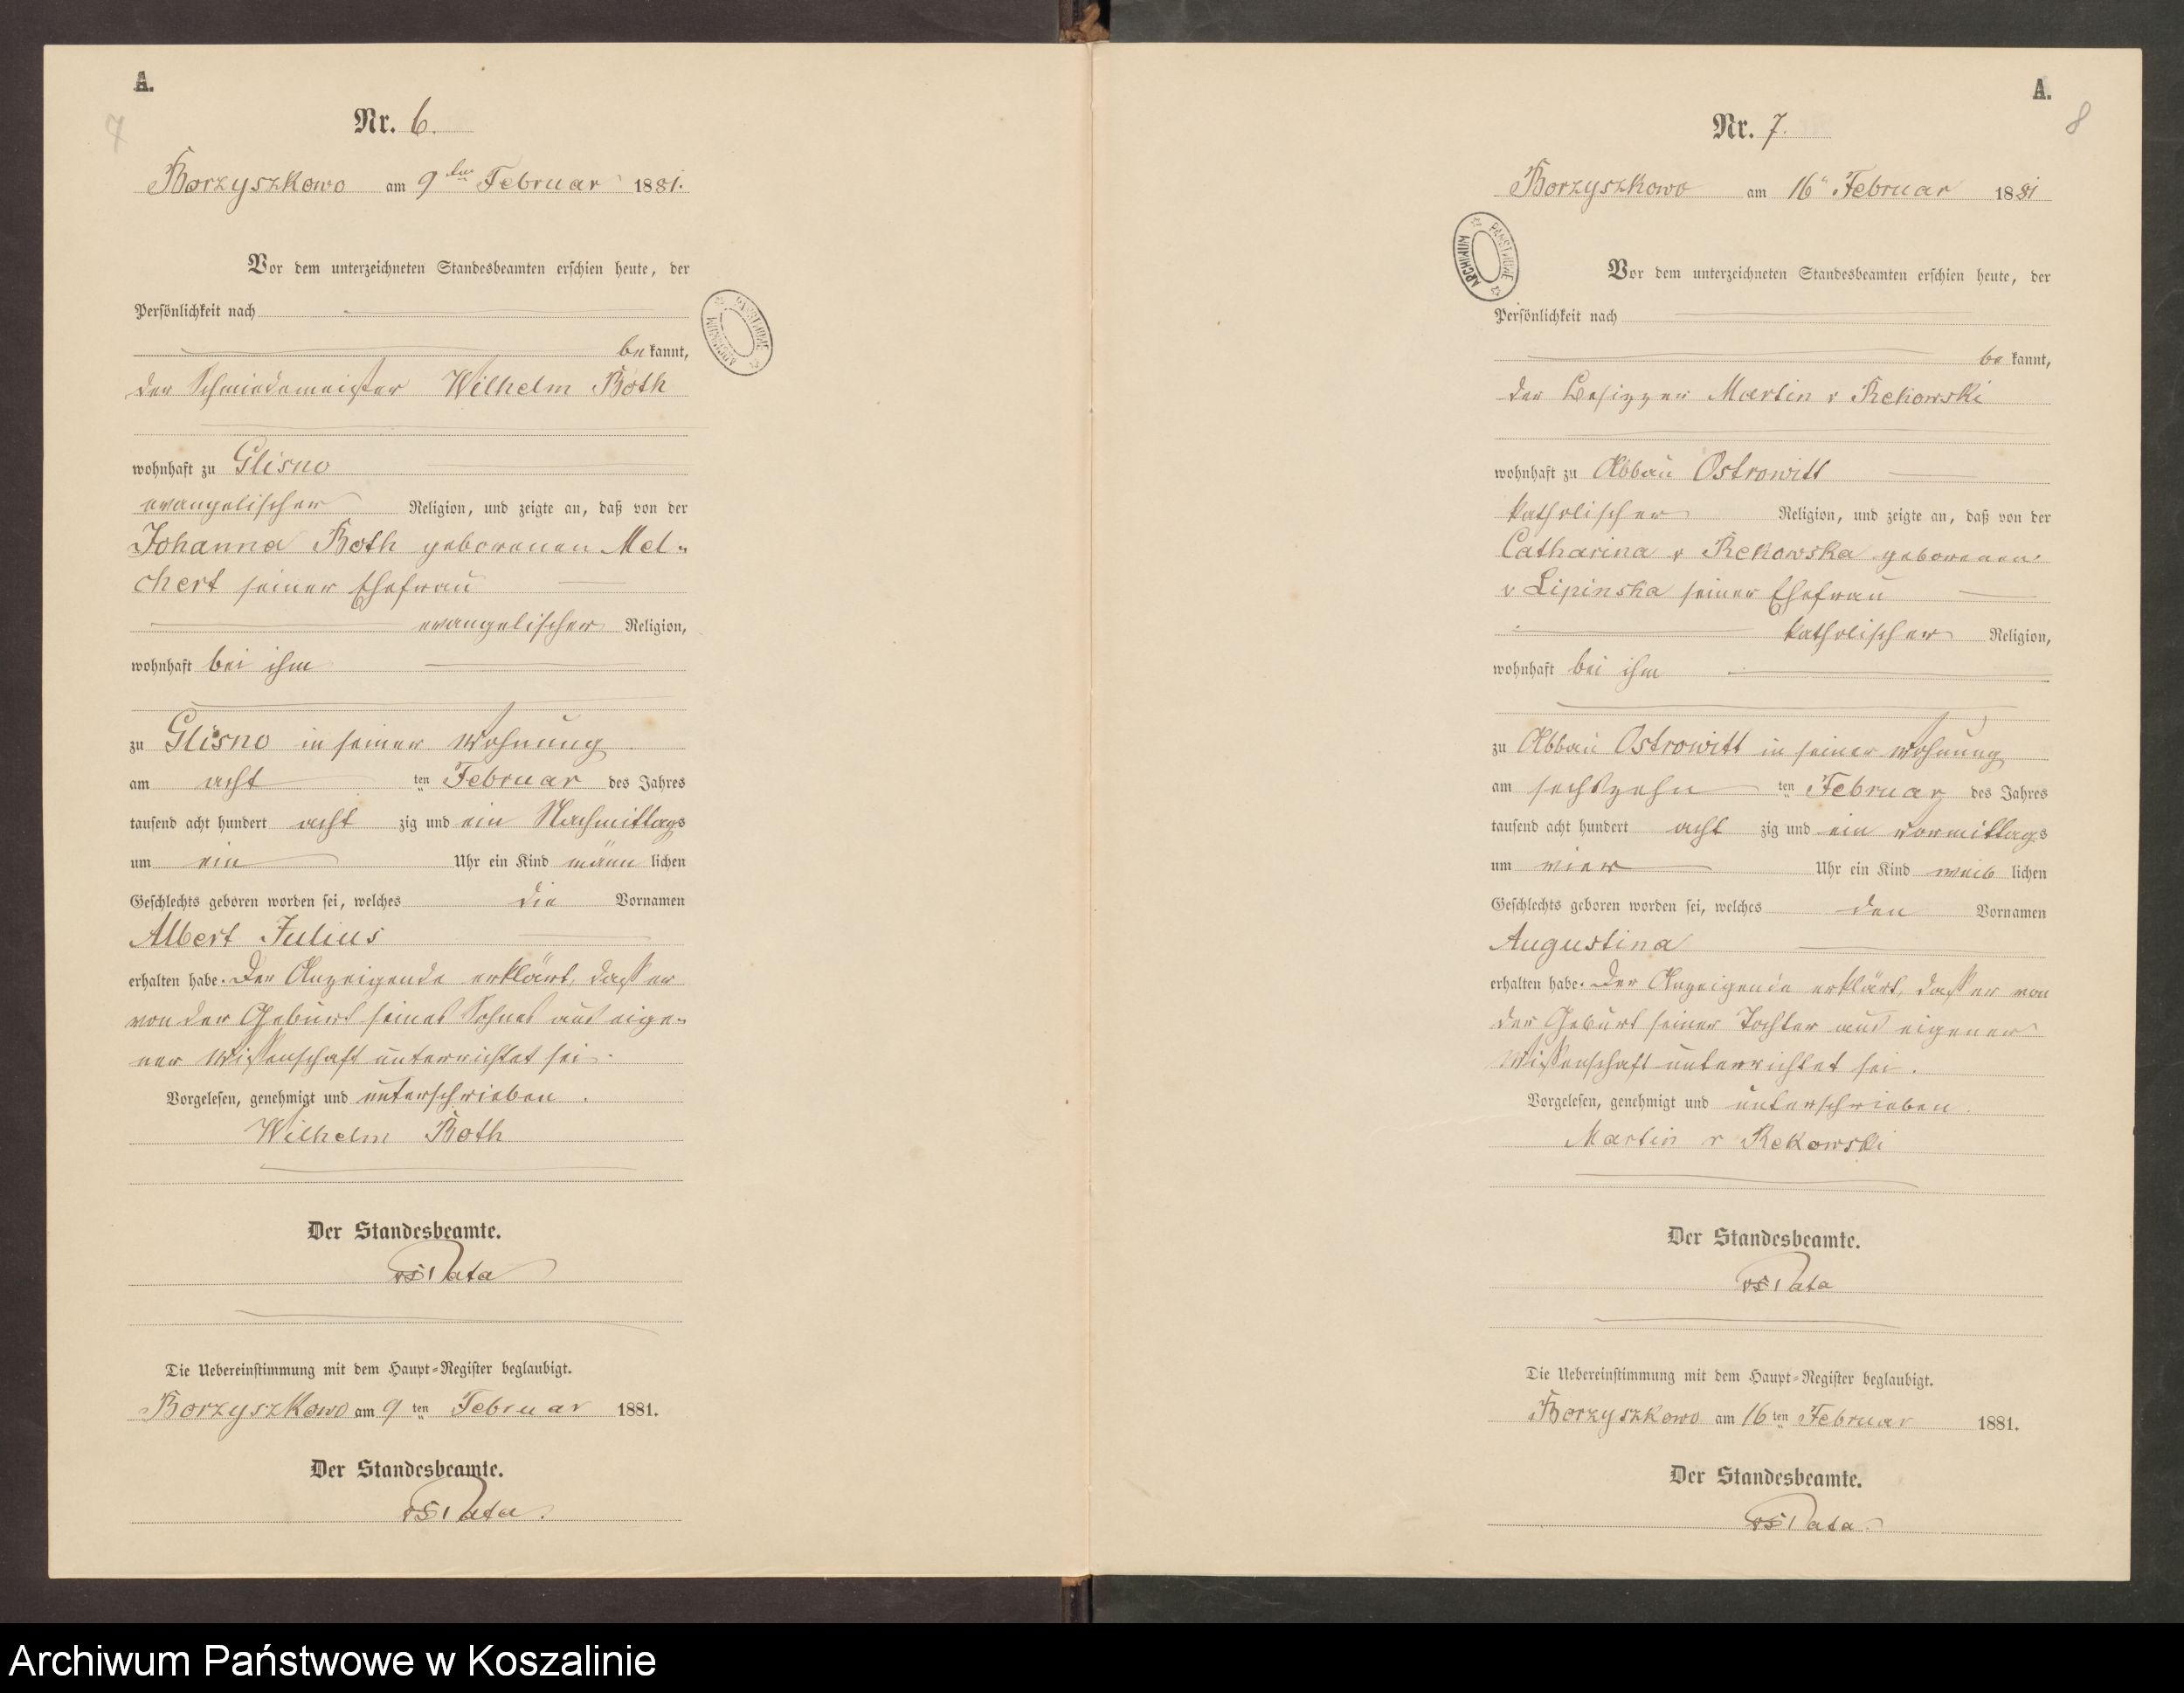 A.
7
Nr. 6.
Borzyszkowo am 9ten Februar 1881.
Vor dem unterzeichneten Standesbeamten erschien heute, der
Persönlichkeit nach
bekannt,
der Schmiedemeister Wilhelm Both
wohnhaft zu Glisno
evangelischer Religion, und zeigte an, daß von der
Johanna Both geborenen Mel-
chert seiner Ehefrau
evangelischer Religion,
wohnhaft bei ihm
zu Glisno in seiner Wohnung
am acht ten Februar des Jahres
tausend acht hundert acht zig und ein Nachmittags
um ein Uhr ein Kind männ lichen
Geschlechts geboren worden sei, welches die Vornamen
Albert Julius
erhalten habe. Der Anzeigende erklärt, dass er
von der Geburt seines Sohnes aus eige-
ner Wissenschaft unterrichtet sei.
Vorgelesen, genehmigt und unterschrieben.
Wilhelm Both
Der Standesbeamte.
Die Uebereinstimmung mit dem Haupt-Register beglaubigt.
Borzyszkowo am 9 ten Februar 1881.
Der Standesbeamte.
ARCHIWUM PAŃSTWOWE
A.
8
Nr. 7.
Borzyszkowo am 16" Februar 1881
Vor dem unterzeichneten Standesbeamten erschien heute, der
Persönlichkeit nach
bekannt,
der Besitzer Martin v Rekowski
wohnhaft zu Abbau Ostrowitt
katholischer Religion, und zeigte an, daß von der
Catharina v Rekowska geborenen
v Lipinska seiner Ehefrau
katholischer Religion,
wohnhaft bei ihm
zu Abbau Ostrowitt in seiner Wohnung
am sechszehn ten Februar des Jahres
tausend acht hundert acht zig und ein vormittags
um vier Uhr ein Kind weib lichen
Geschlechts geboren worden sei, welches den Vornamen
Augustina
erhalten habe. Der Anzeigende erklärt, dass er von
der Geburt seiner Tochter aus eigener
Wissenschaft unterrichtet sei.
Vorgelesen, genehmigt und unterschrieben.
Martin v Rekowski
Der Standesbeamte.
Die Uebereinstimmung mit dem Haupt-Register beglaubigt.
Borzyszkowo am 16 ten Februar 1881.
Der Standesbeamte.
ARCHIWUM PAŃSTWOWE
Archiwum Państwowe w Koszalinie